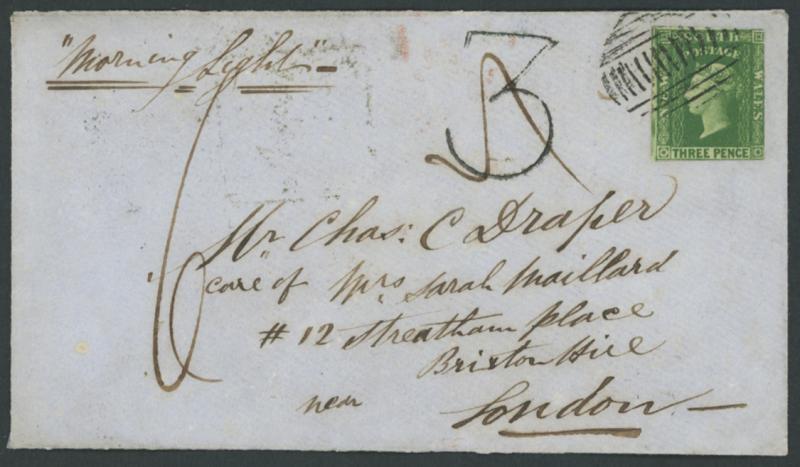 "Morning Light"
3
6
SOUTH
POSTAGE
WALES
THREE PENCE
Mr Chas: C Draper
care of Mrs Sarah Maillard
# 12 Streatham place
Brixton Hill
near London